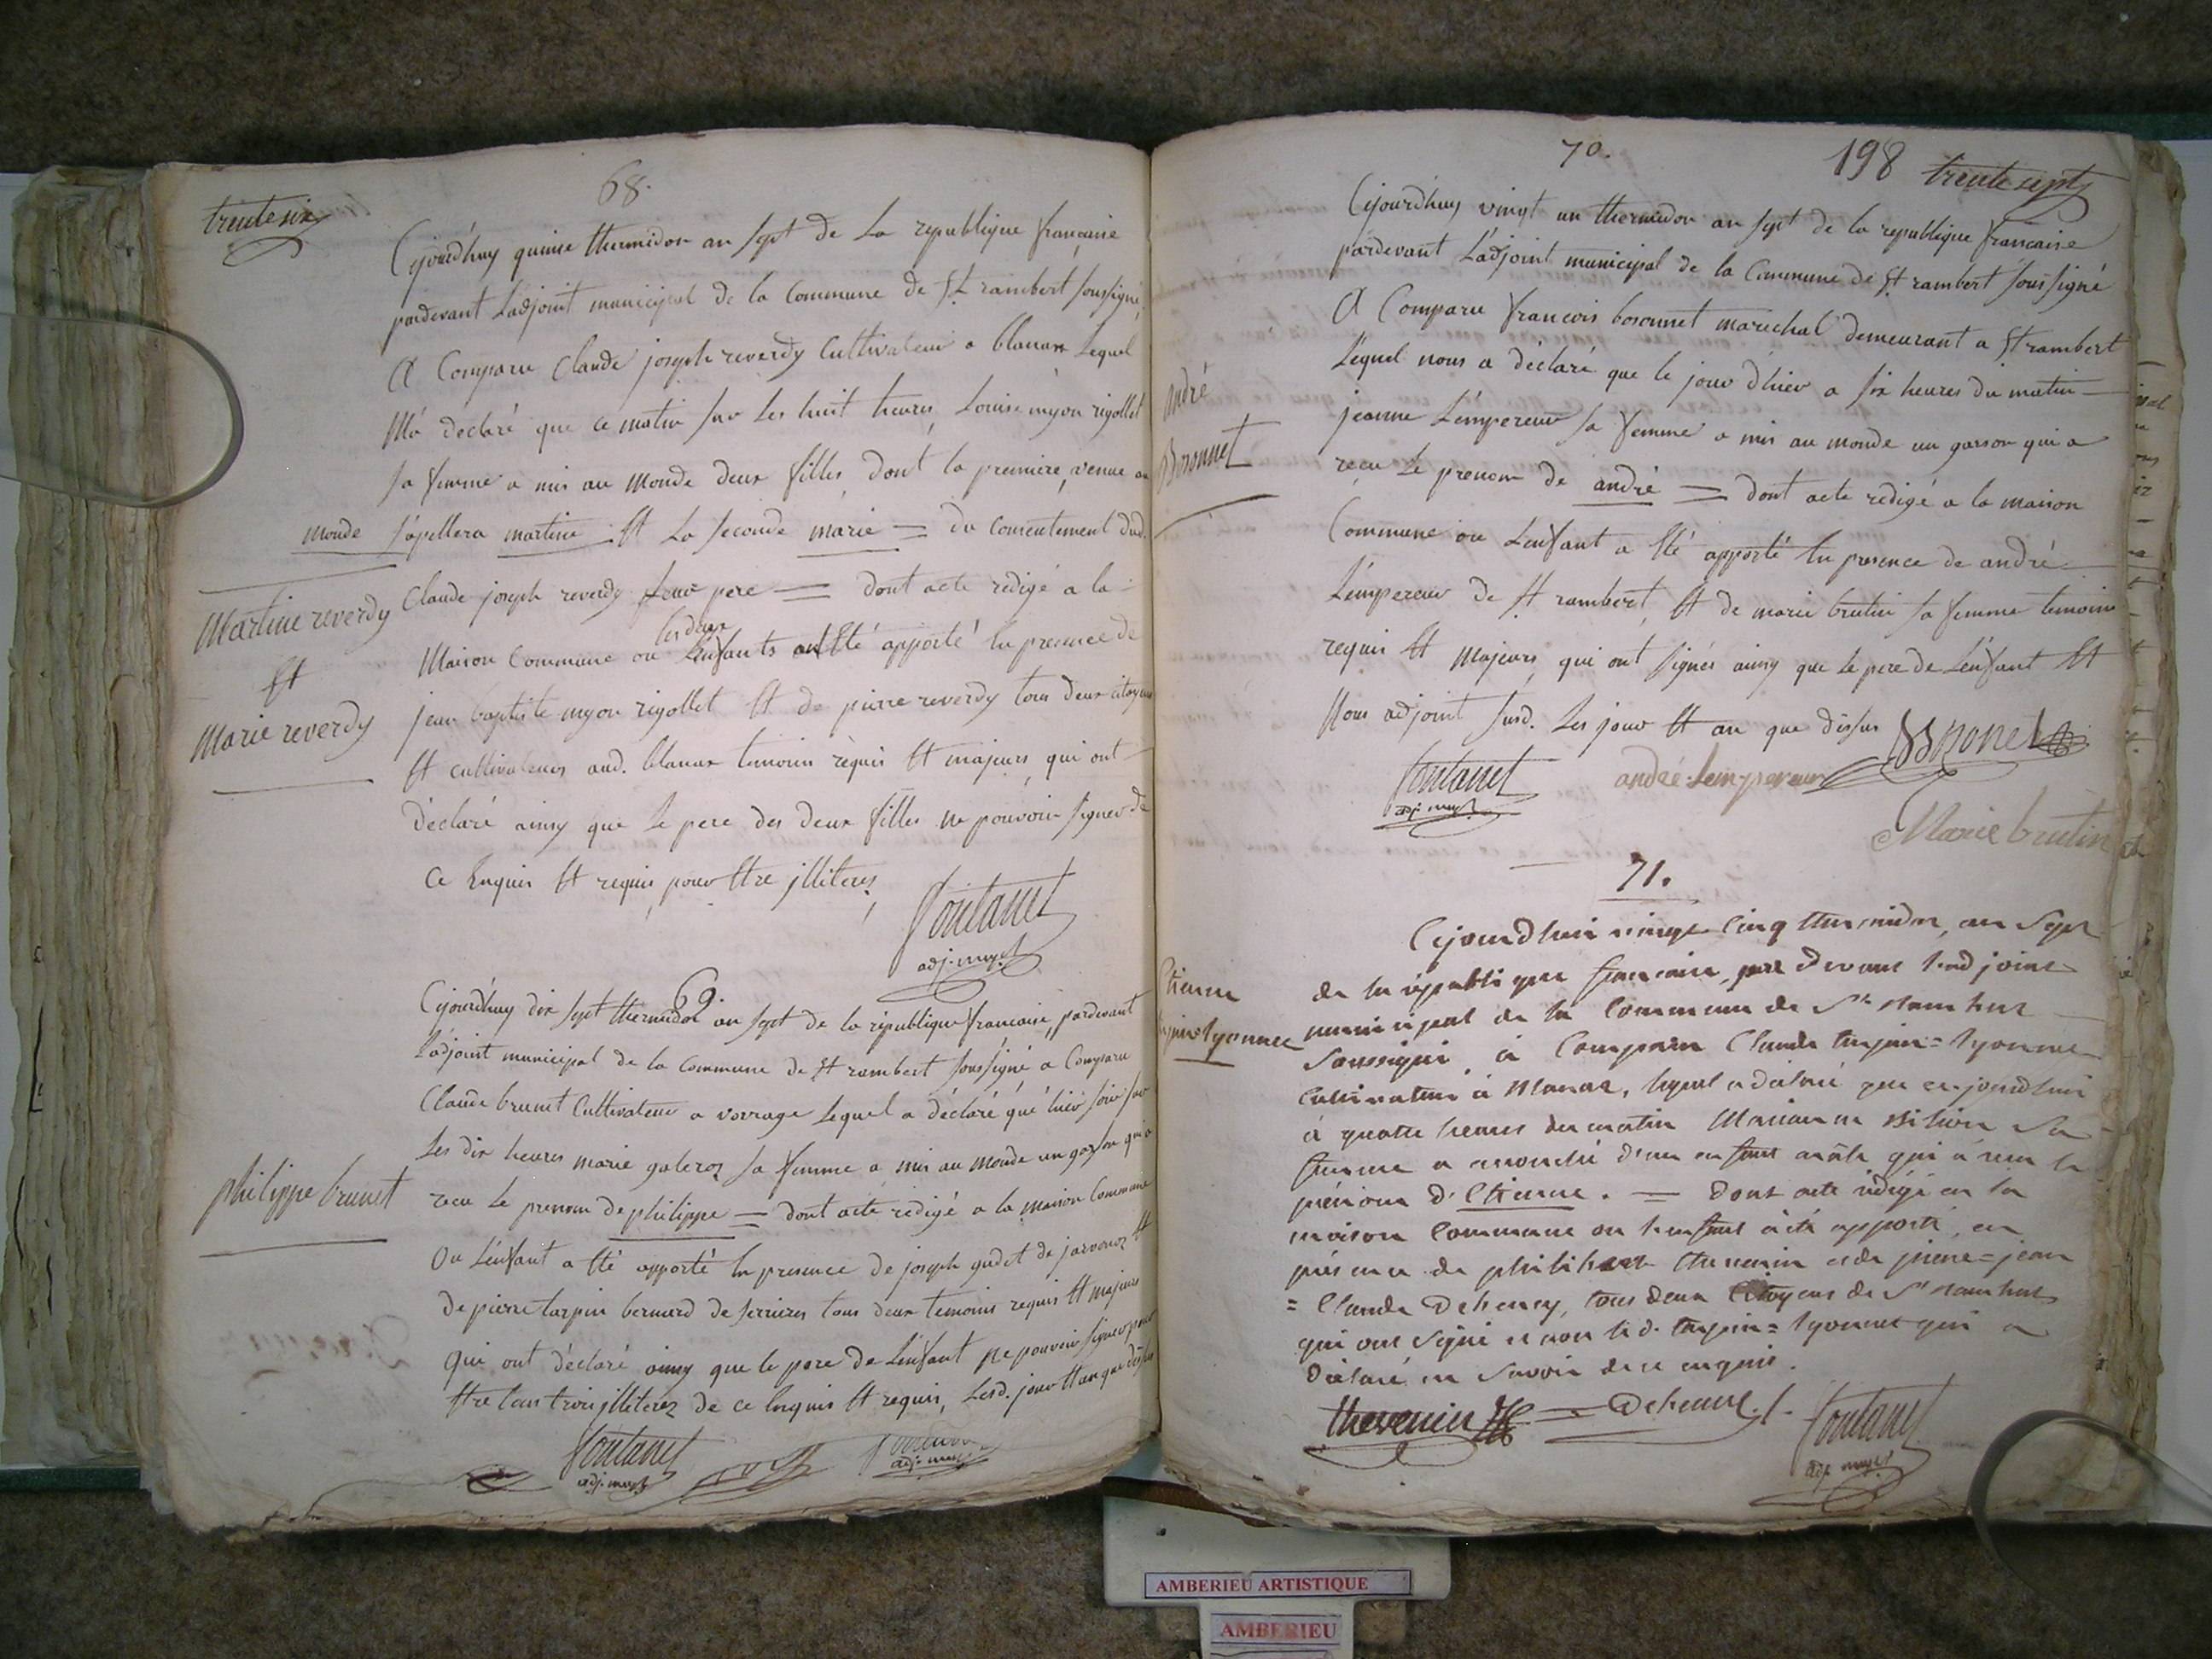 trente six
68.
Cejourd'huy quinse thermidor an sept de la republique francaise
pardevant L'adjoint municipal de la Commune de St rambert soussigné,
A Comparu Claude joseph reverdy Cultivateur a blanas Lequel
M'a déclaré que ce matin sur Les huit heures, Louise myon rigollet
sa femme a mis au Monde deux filles, dont la premiere, venue au
monde s'apellera martine Et La seconde marie = du consentement dud.
Claude joseph reverdy Leur pere = dont acte redigé a la
Martine reverdy
Et
Marie reverdy
les deux
Maison Commune ou Enfants ont Eté apporté En presence de
jean baptiste myon rigollet Et de pierre reverdy tous deux citoyens
Et cultivateurs aud. blanas temoins requis Et majeurs, qui ont
déclaré ainsy que Le pere des deux filles ne pouvoir signer de
Ce Enquis Et requis pour Etre jlliterez
fontanet
adj. mupl
69
Cejourd'huy dix sept thermidor an sept de la république francaise, pardevant
L'adjoint municipal de la Commune de St rambert soussigné, a Comparu
Claude brunet Cultivateur a vorrage Lequel a déclaré que hier soir sur
Les dix heures marie galeroz sa femme a mis au monde un garson qui a
philippe brunet
recu Le prenom de philippe = dont acte redigé a la maison Commune
Ou L'enfant a Eté apporté En presence de joseph gudet de javornoz Et
De pierre tarpin bernard de serrieres tous deux temoins requis Et majeurs
Qui ont déclaré ainsy que le pere de L'enfant ne pouvoir signer pour
Etre tous trois jlliterez de ce Enquis Et requis, Lesd. jour Et an que dessus
fontanet
adj. mupl
adj. mupl
70.
198
trente sept
Cejourd'huy vingt un thermidor an sept de la republique francaise
pardevant L'adjoint municipal de la Commune de St rambert soussigné
A Comparu francois bosonnet marechal demeurant a St rambert
Lequel nous a déclaré que le jour d'hier a six heures du matin
andré
Bosonnet
jeanne L'empereur sa femme a mis au monde un garson qui a
recu Le prenom de andré = dont acte redigé a la maison
Commune ou L'enfant a Eté apporté En presence de andré
L'empereur de St rambert, Et de marie brutin sa femme temoins
requis Et Majeurs, qui ont signés ainsy que le pere de L'enfant Et
Nous adjoint susd. Les jour Et an que dessus
fontanet
adj. mupl
andré lempereur
Marie brutin
71.
Cejourd'hui vingt-cinq thermidor, an Sept
de la république francaise, par devant l'adjoint
municipal de la Commune de St rambert
Etienne
tarpin=lyonnet
Soussigné, à Comparu Claude tarpin=lyonnet
Cultivateur à blanas, lequel a déclaré que cejourd'hui
à quatre heures du matin Marianne sa
femme a accouché d'un enfant mâle qui a recu le
prénom d'Etienne. = Dont acte rédigé en la
maison Commune ou l'enfant à été apporté, en
présence de philibert thevenin et de pierre=jean
=Claude Dehenry, tous deux Citoyens de St rambert
qui ont signé et non le d. tarpin=lyonnet qui a
déclaré ne savoir de ce enquis.
thevenin
fontanet
adj. mupl
AMBERIEU ARTISTIQUE
AMBERIEU